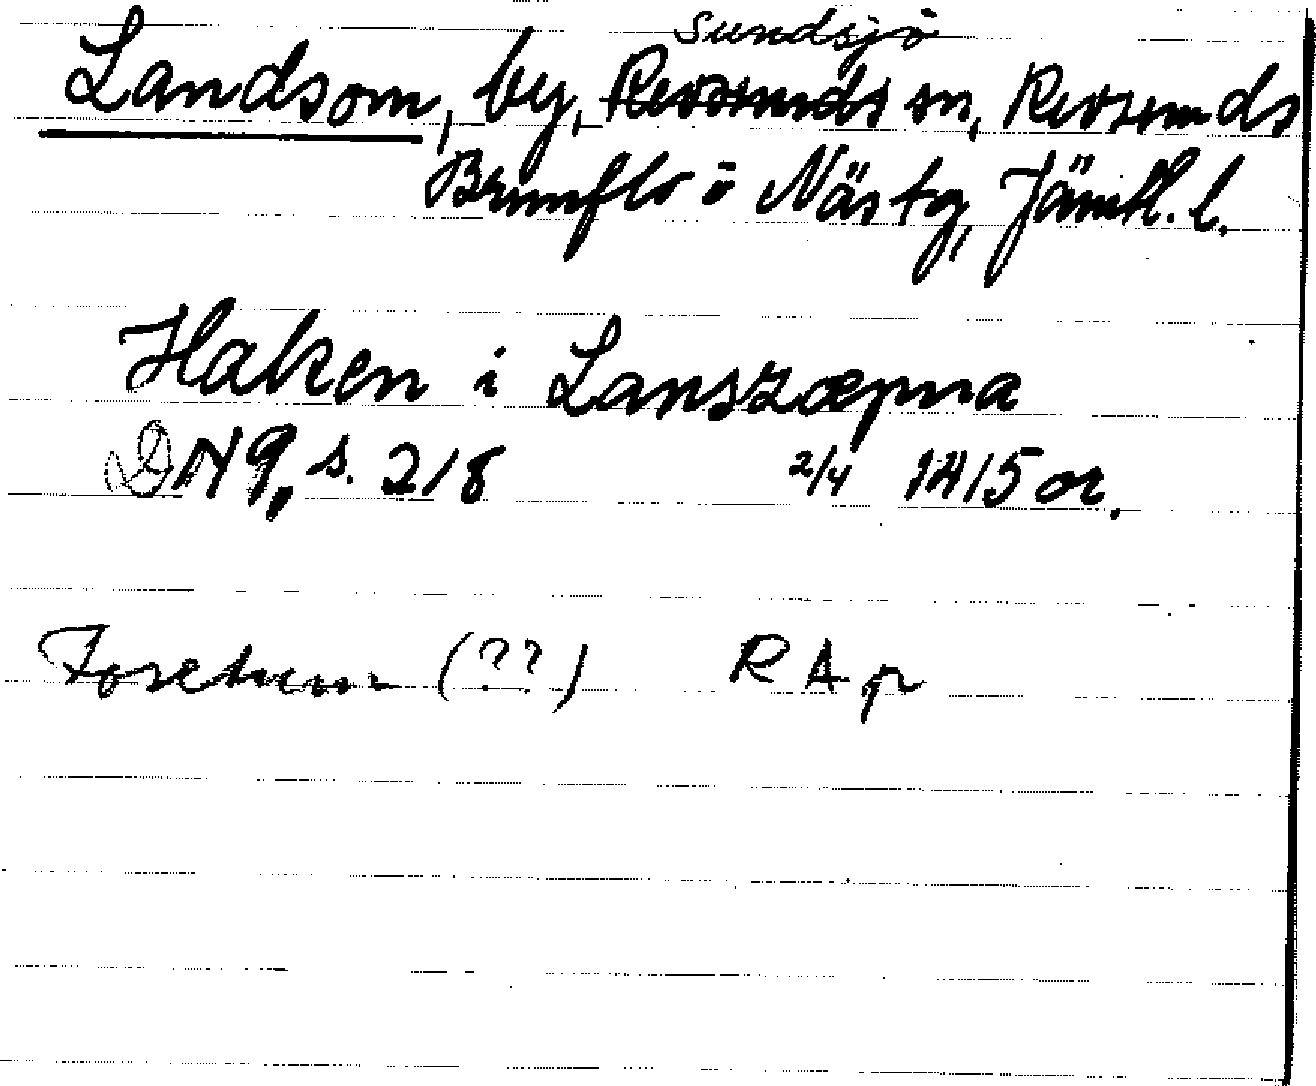 Sundsjö
Landsom, by, Revsunds sn, Revsunds
Brunflo o Näs tg, Jämtl. l.
Haken i Lanszæpna
DN 9, s. 218 2/4 1415 or.
(??) RAp